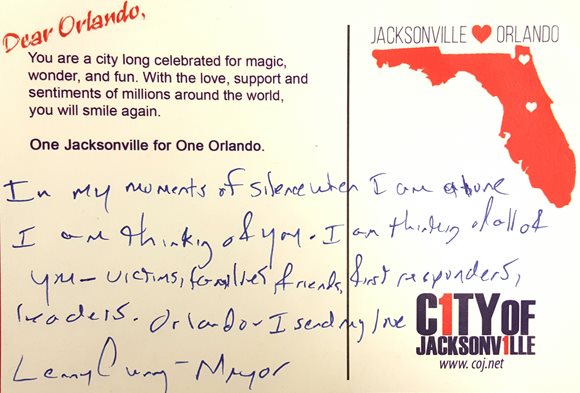 Dear Orlando,
You are a city long celebrated for magic,
wonder, and fun. With the love, support and
sentiments of millions around the world,
you will smile again.
One Jacksonville for One Orlando.
JACKSONVILLE ❤ ORLANDO
In my moments of silence when I am alone
I am thinking of you. I am thinking of all of
you – victims, families, friends, first responders,
leaders. Orlando I send my love
Lenny Curry – Mayor
C1TY OF
JACKSONV1LLE
www.coj.net